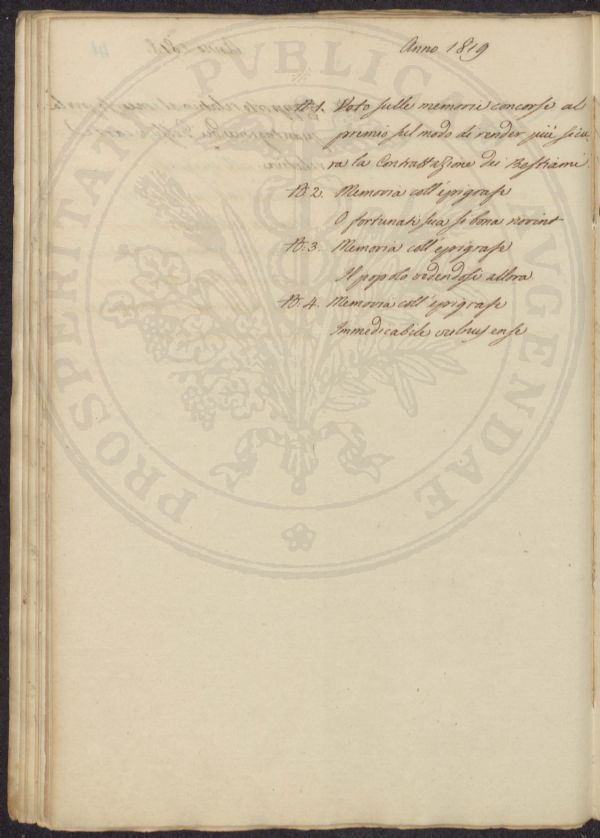 Anno 1819
N. 1. Voto sulle memorie concorse al
premio sul modo di render più sicu
ra la Contrattazione dei Bestiami
N. 2. Memoria coll'epigrafe
O fortunati sua si bona norint
N. 3. Memoria coll'epigrafe
Il popolo vedendosi allora
N. 4. Memoria coll'epigrafe
Immedicabile vulnus ense
PROSPERITATI PVBLICAE AVGENDAE